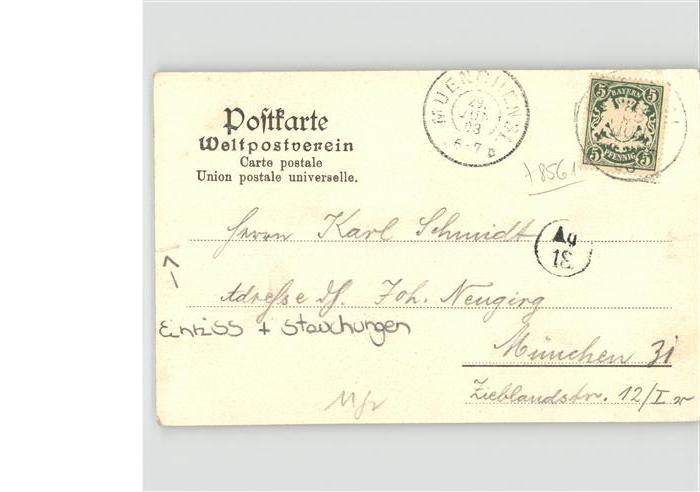 Postkarte
Weltpostverein
Carte postale
Union postale universelle.
MUENCHEN 31
29.
JUL
03
6-7 N
5 BAYERN 5
5 PFENNIG 5
78561
Herrn Karl Schmidt
Ag
18
Adresse H. Joh. Neugirg
Einriss + Stauchungen
München 31
Zieblandstr. 12/I r